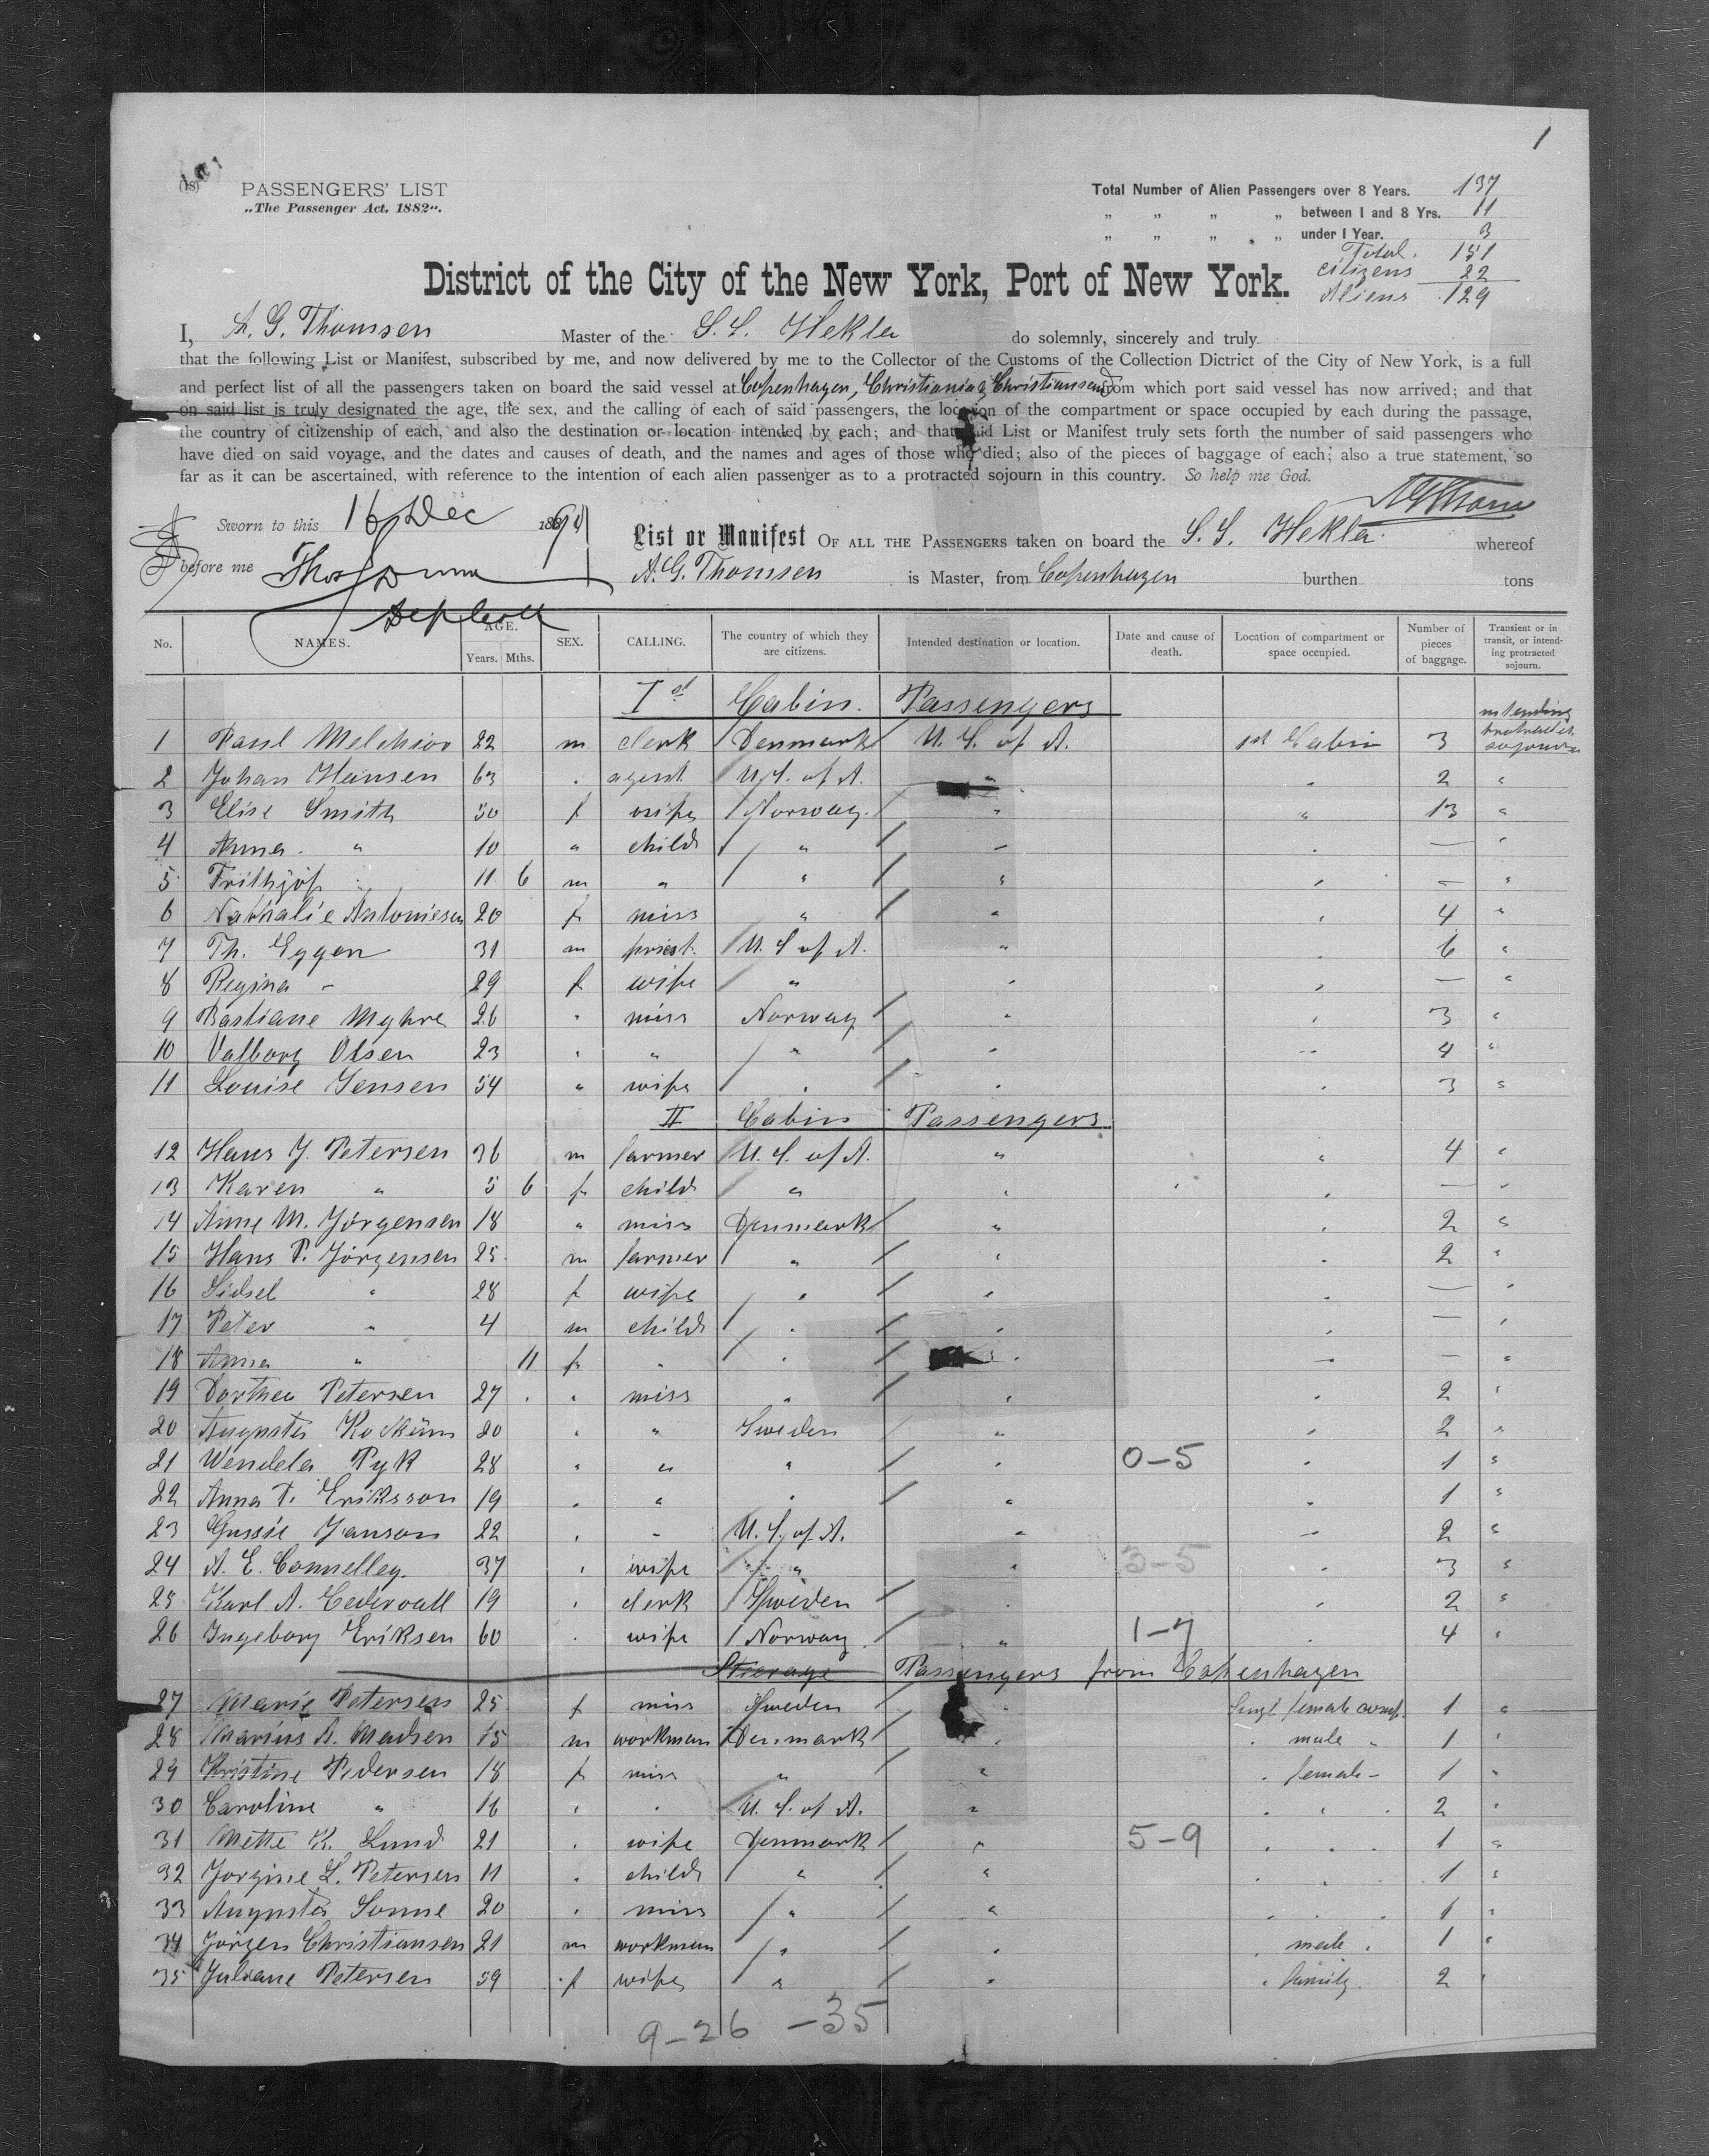 1
(18)
PASSENGERS' LIST
„The Passenger Act, 1882".
Total Number of Alien Passengers over 8 Years. 137
„ „ „ „ between 1 and 8 Yrs. 11
„ „ „ „ under 1 Year. 3
Total. 151
Citizens 22
Aliens 129
District of the City of the New York, Port of New York.
I, A. G. Thomsen Master of the S. S. Hekla do solemnly, sincerely and truly
that the following List or Manifest, subscribed by me, and now delivered by me to the Collector of the Customs of the Collection Dictrict of the City of New York, is a full
and perfect list of all the passengers taken on board the said vessel at Copenhagen, Christiania & Christiansand from which port said vessel has now arrived; and that
on said list is truly designated the age, the sex, and the calling of each of said passengers, the location of the compartment or space occupied by each during the passage,
the country of citizenship of each, and also the destination or location intended by each; and that said List or Manifest truly sets forth the number of said passengers who
have died on said voyage, and the dates and causes of death, and the names and ages of those who died; also of the pieces of baggage of each; also a true statement, so
far as it can be ascertained, with reference to the intention of each alien passenger as to a protracted sojourn in this country. So help me God.
Sworn to this 16 Dec 189
before me
List or Manifest OF ALL THE PASSENGERS taken on board the S. S. Hekla whereof
A. G. Thomsen is Master, from Copenhagen burthen tons
No. NAMES. AGE. Years. Mths. SEX. CALLING. The country of which they are citizens. Intended destination or location. Date and cause of death. Location of compartment or space occupied. Number of pieces of baggage. Transient or in transit, or intending protracted sojourn.
Ist Cabin. Passengers
1 Paul Melchior 22 m clerk Denmark U. S. of A. 1st Cabin 3 intending protracted sojourn
2 Johan Hansen 63 " agent U. S. of A. " " 2 "
3 Elise Smith 50 f wife Norway. " " 13 "
4 Anna " 10 " child " " " — "
5 Frithjof " 11 6 m " " " " — "
6 Nathalie Antoniesen 20 f miss " " " 4 "
7 Th. Eggen 31 m priest U. S. of A. " " 6 "
8 Regina " 29 f wife " " " — "
9 Bastiane Myhre 26 " miss Norway " " 3 "
10 Valborg Olsen 23 " " " " " 4 "
11 Louise Jensen 54 " wife " " " 3 "
II Cabin Passengers
12 Hans J. Petersen 36 m farmer U. S. of A. " " 4 "
13 Karen " 5 6 f child " " " — "
14 Anne M. Jörgensen 18 " miss Denmark " " 2 "
15 Hans P. Jörgensen 25 m farmer " " " 2 "
16 Sidsel " 28 f wife " " " — "
17 Peter " 4 m child " " " — "
18 Anna " 11 f " " " " — "
19 Dorthea Petersen 27 " miss " " " 2 "
20 Augusta Kockum 20 " " Sweden " " 2 "
21 Wendela Pyk 28 " " " " 0-5 " 1 "
22 Anna T. Eriksson 19 " " " " " 1 "
23 Gussie Janson 22 " " U. S. of A. " " 2 "
24 A. E. Connelley. 37 " wife " " 3-5 " 3 "
25 Karl A. Cedervall 19 " clerk Sweden " " 2 "
26 Ingeborg Eriksen 60 " wife Norway " 1-7 " 4 "
Steerage Passengers from Copenhagen
27 Marie Petersen 25 f miss Sweden " Singl female comp. 1 "
28 Marius A. Madsen 15 m workman Denmark " " male " 1 "
29 Kristine Pedersen 18 f miss " " " female " 1 "
30 Caroline " 16 " " U. S. of A. " " " " 2 "
31 Mette K. Lund 21 " wife Denmark " 5-9 " " " 1 "
32 Jorgine L. Petersen 11 " child " " " " 1 "
33 Augusta Sonne 20 " miss " " " " " 1 "
34 Jörgen Christiansen 21 m workman " " " male " 1 "
35 Juliane Petersen 59 f wife " " " family. 2 "
9-26 -35